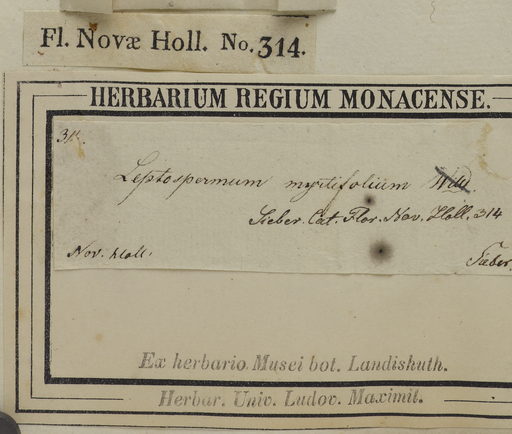 Fl. Novæ Holl. No. 314.
HERBARIUM REGIUM MONACENSE.
Leptospermum myrtifolium
Sieber. Cat. Flor. Nov. Holl. 314
Nov. Holl. Sieber.
Ex herbario Musei bot. Landishuth.
Herbar. Univ. Ludov. Maximil.